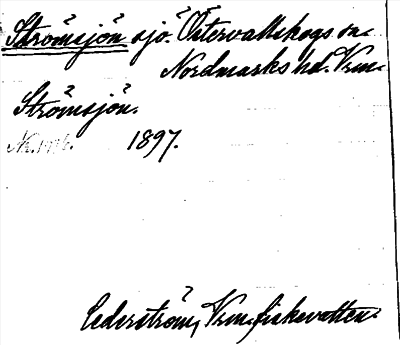 Strömsjön sjö. Östervallskogs sn.
Nordmarks hd. Vrm.
Strömsjön.
1897.
Cederström, Vrm. fiskevatten.